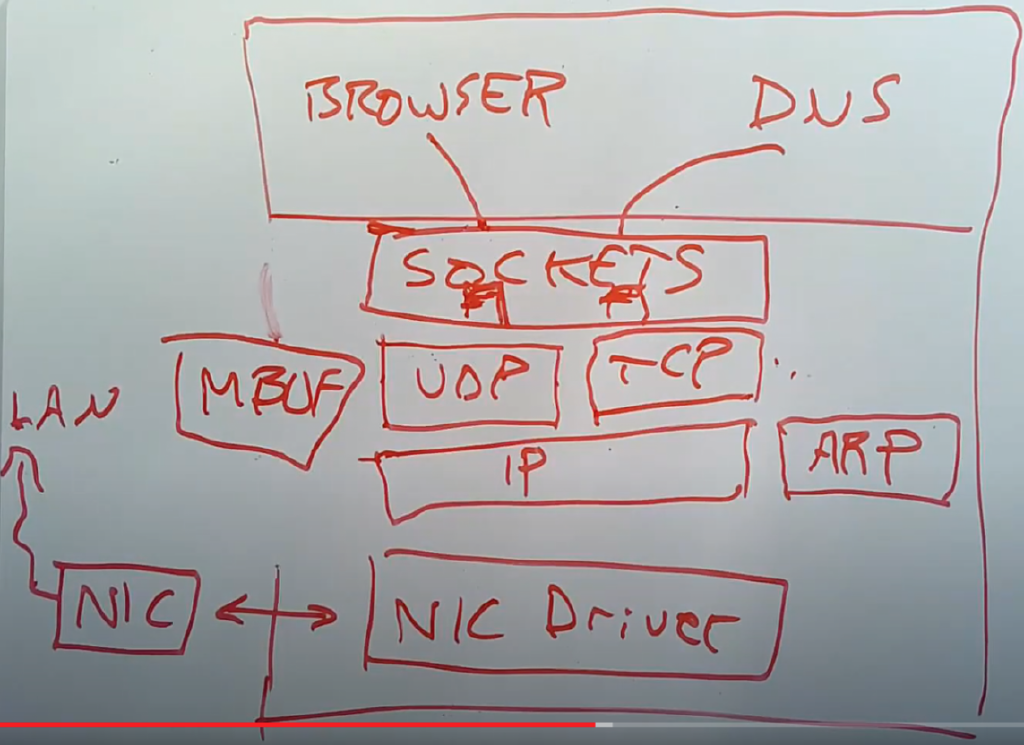 BROWSER DNS
SOCKETS
MBUF UDP TCP ...
LAN
IP ARP
NIC NIC Driver